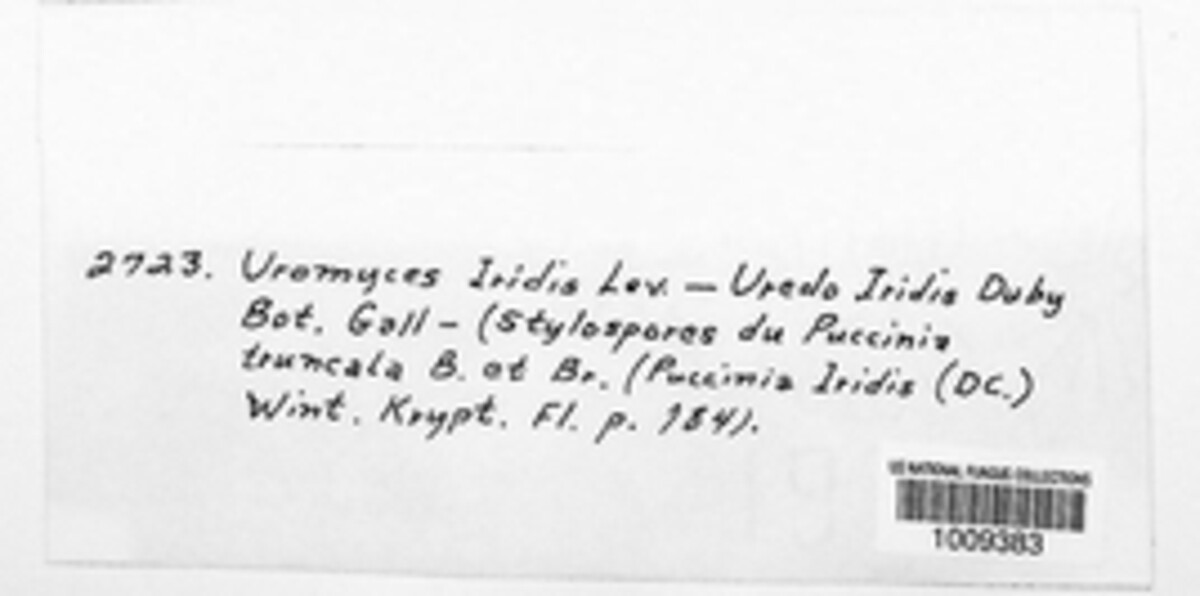 2723. Uromyces Iridis Lev. — Uredo Iridis Duby
Bot. Gall – (Stylospores du Puccinia
truncata B. et Br. (Puccinia Iridis (DC.)
Wint. Krypt. Fl. p. 184).
US NATIONAL FUNGUS COLLECTIONS
1009383